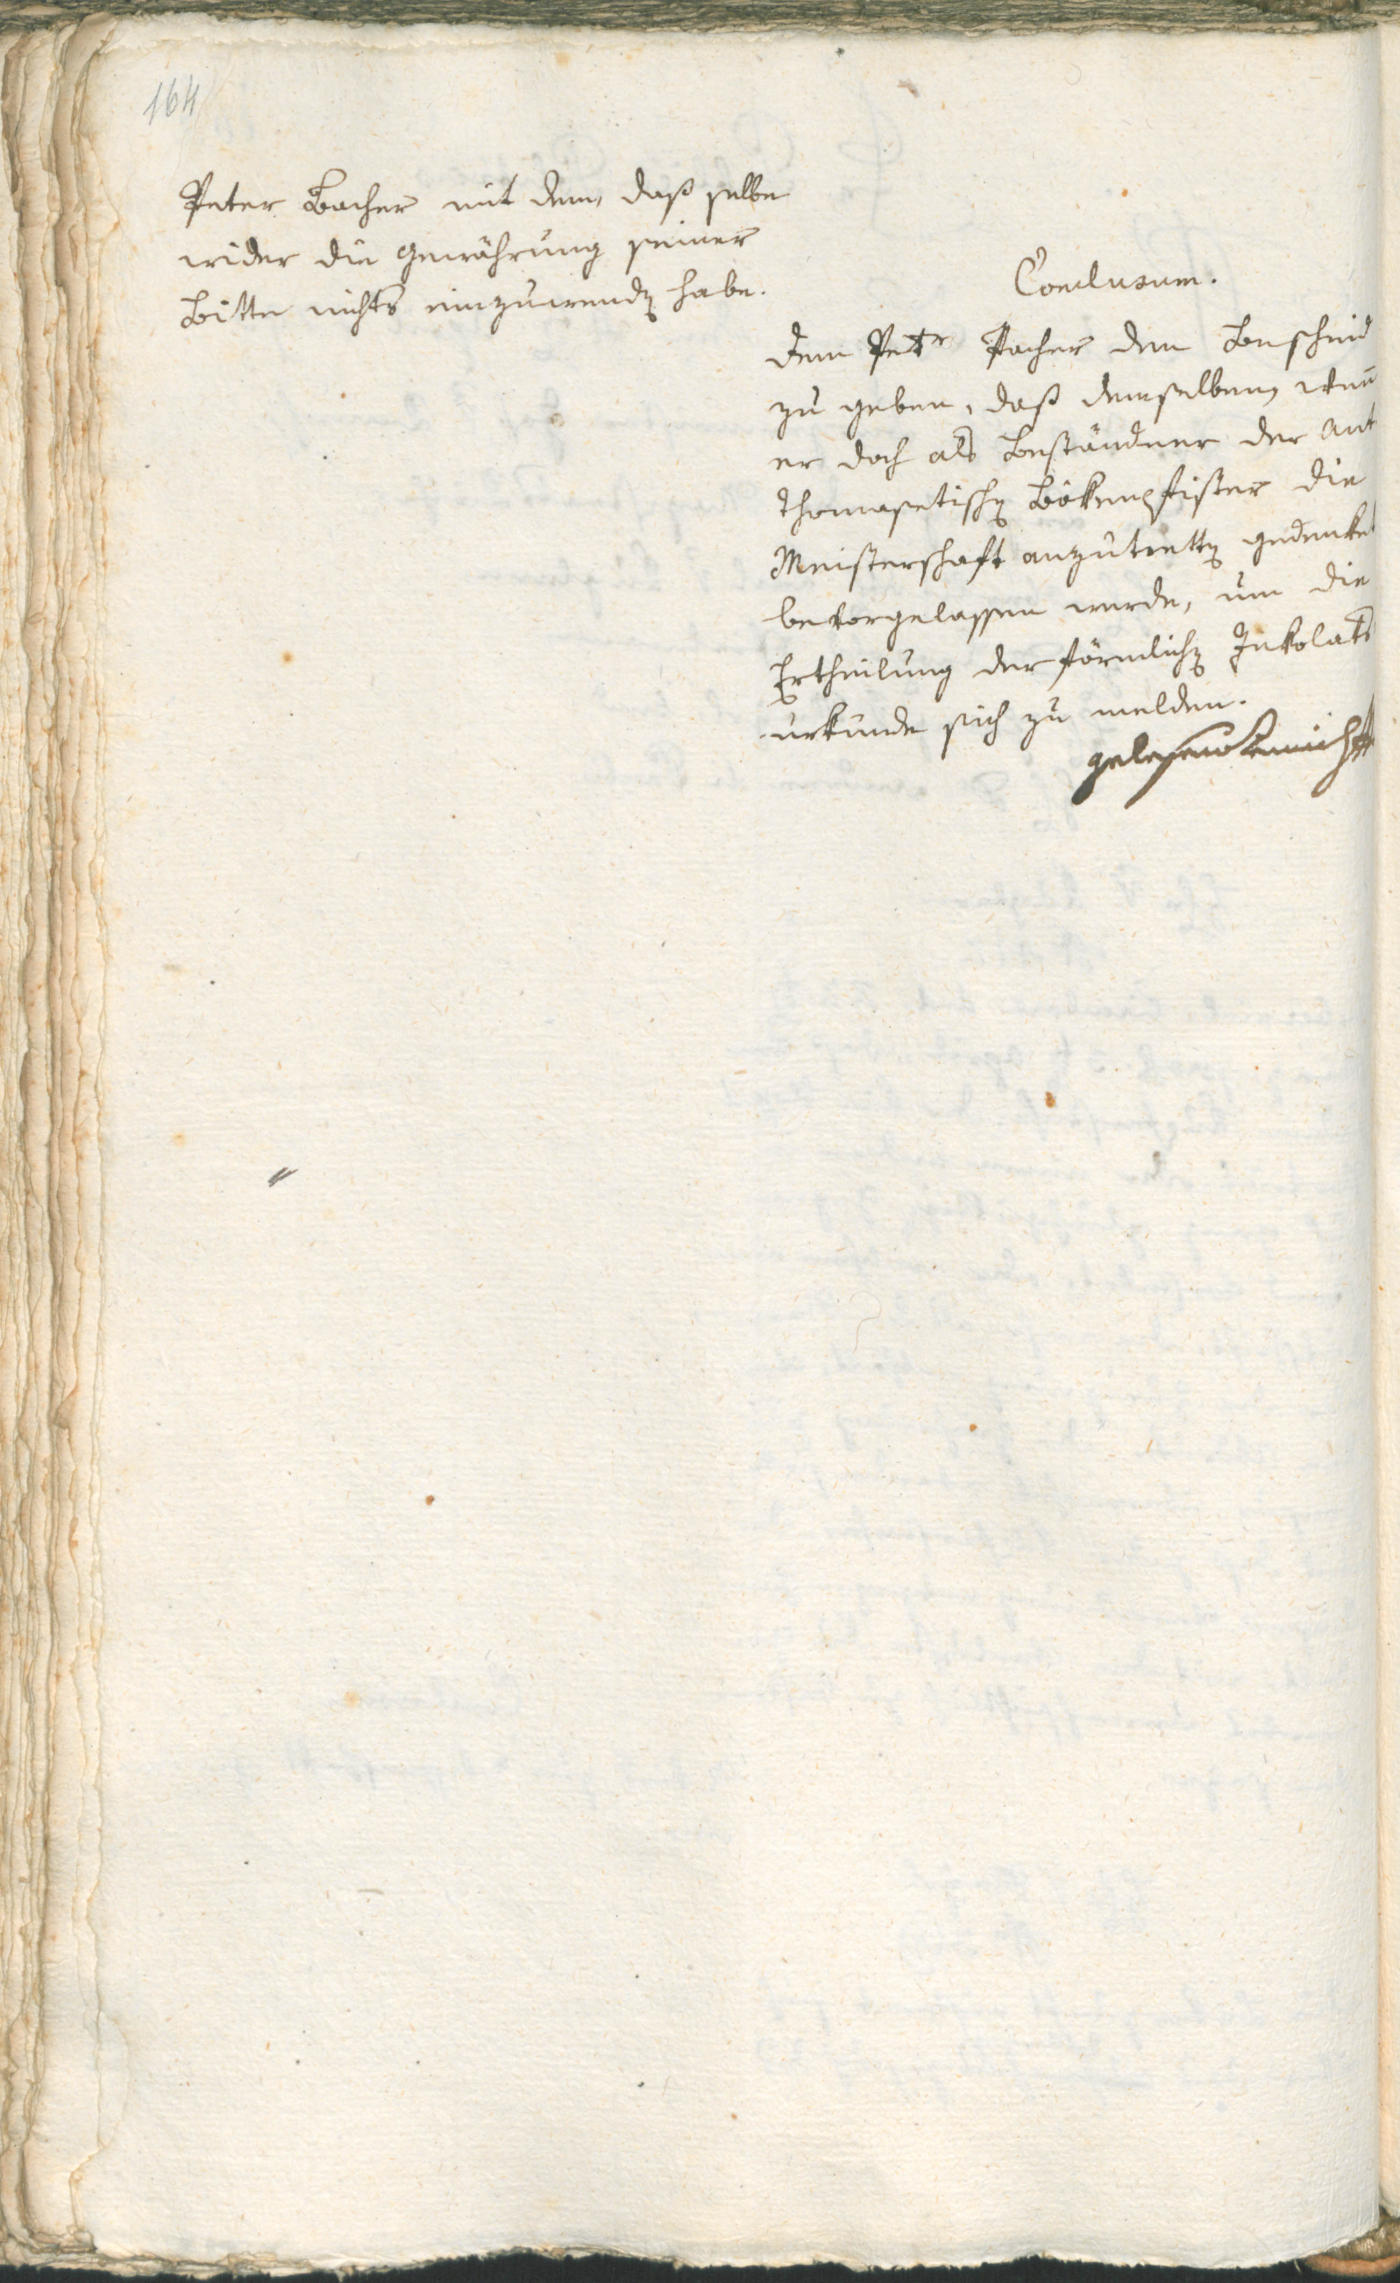 164
Peter Bacher mit dem, daß selbe
wider die Gewährung seiner
Bitte nichts einzuwenden habe.
Conclusum.
Dem Petr Pacher den Bescheid
zu geben, daß demselben, wenn
er doch als Beständner der Ant
Thomasetischen Böken Pfister die
Meisterschaft anzutretten gedenket
bevorgelassen werde, um die
Ertheilung der förmlichen Inkolats
urkunde sich zu melden.
gelesen